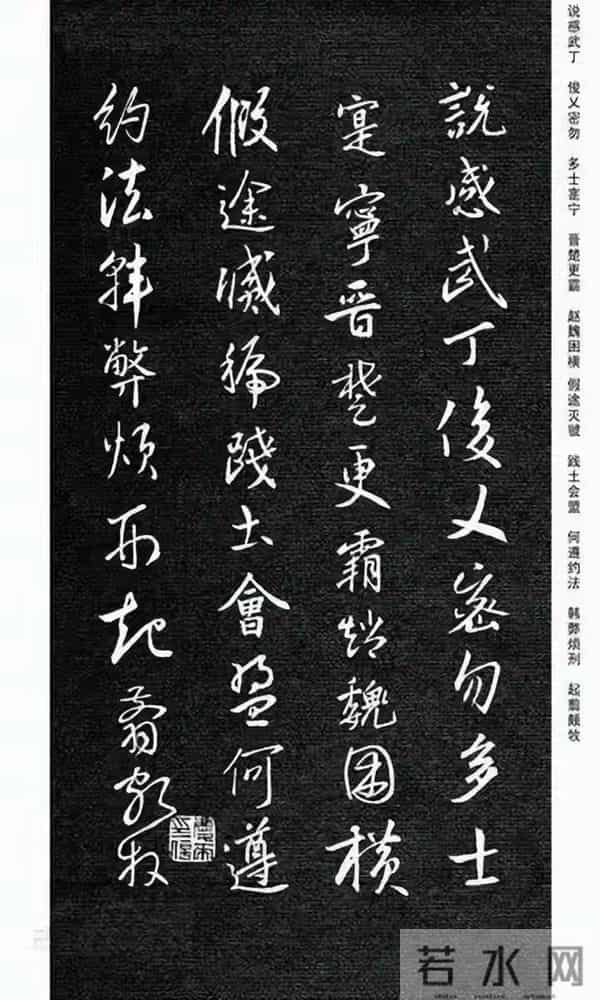 说感武丁 俊乂密勿 多士寔宁 晋楚更霸 赵魏困横 假途灭虢 践土会盟 何遵约法 韩弊烦刑 起翦颇牧
說感武丁俊乂密勿多士
寔寧晉楚更霸趙魏困橫
假途滅虢踐土會盟何遵
約法韓弊煩刑起翦頗牧
若水网